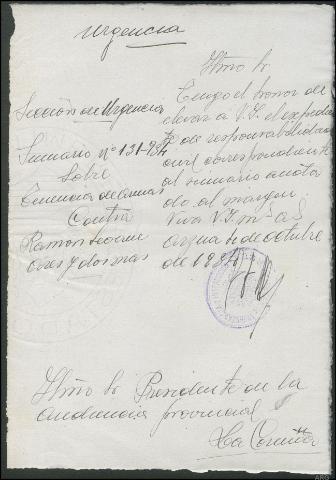 Urgencia
Sección de Urgencia
Sumario nº 131-934
Sobre
Tenencia de armas
Contra
Ramon
Ores y dos mas
Iltmo Sr
Tengo el honor de
elevar a V.I. el expedien
te de responsabilidad
civil correspondiente
al sumario anota
do al margen.
Viva V.I. ms as
de octubre
de 1934
Iltmo Sr Presidente de la
Audiencia provincial
La Coruña
ARG